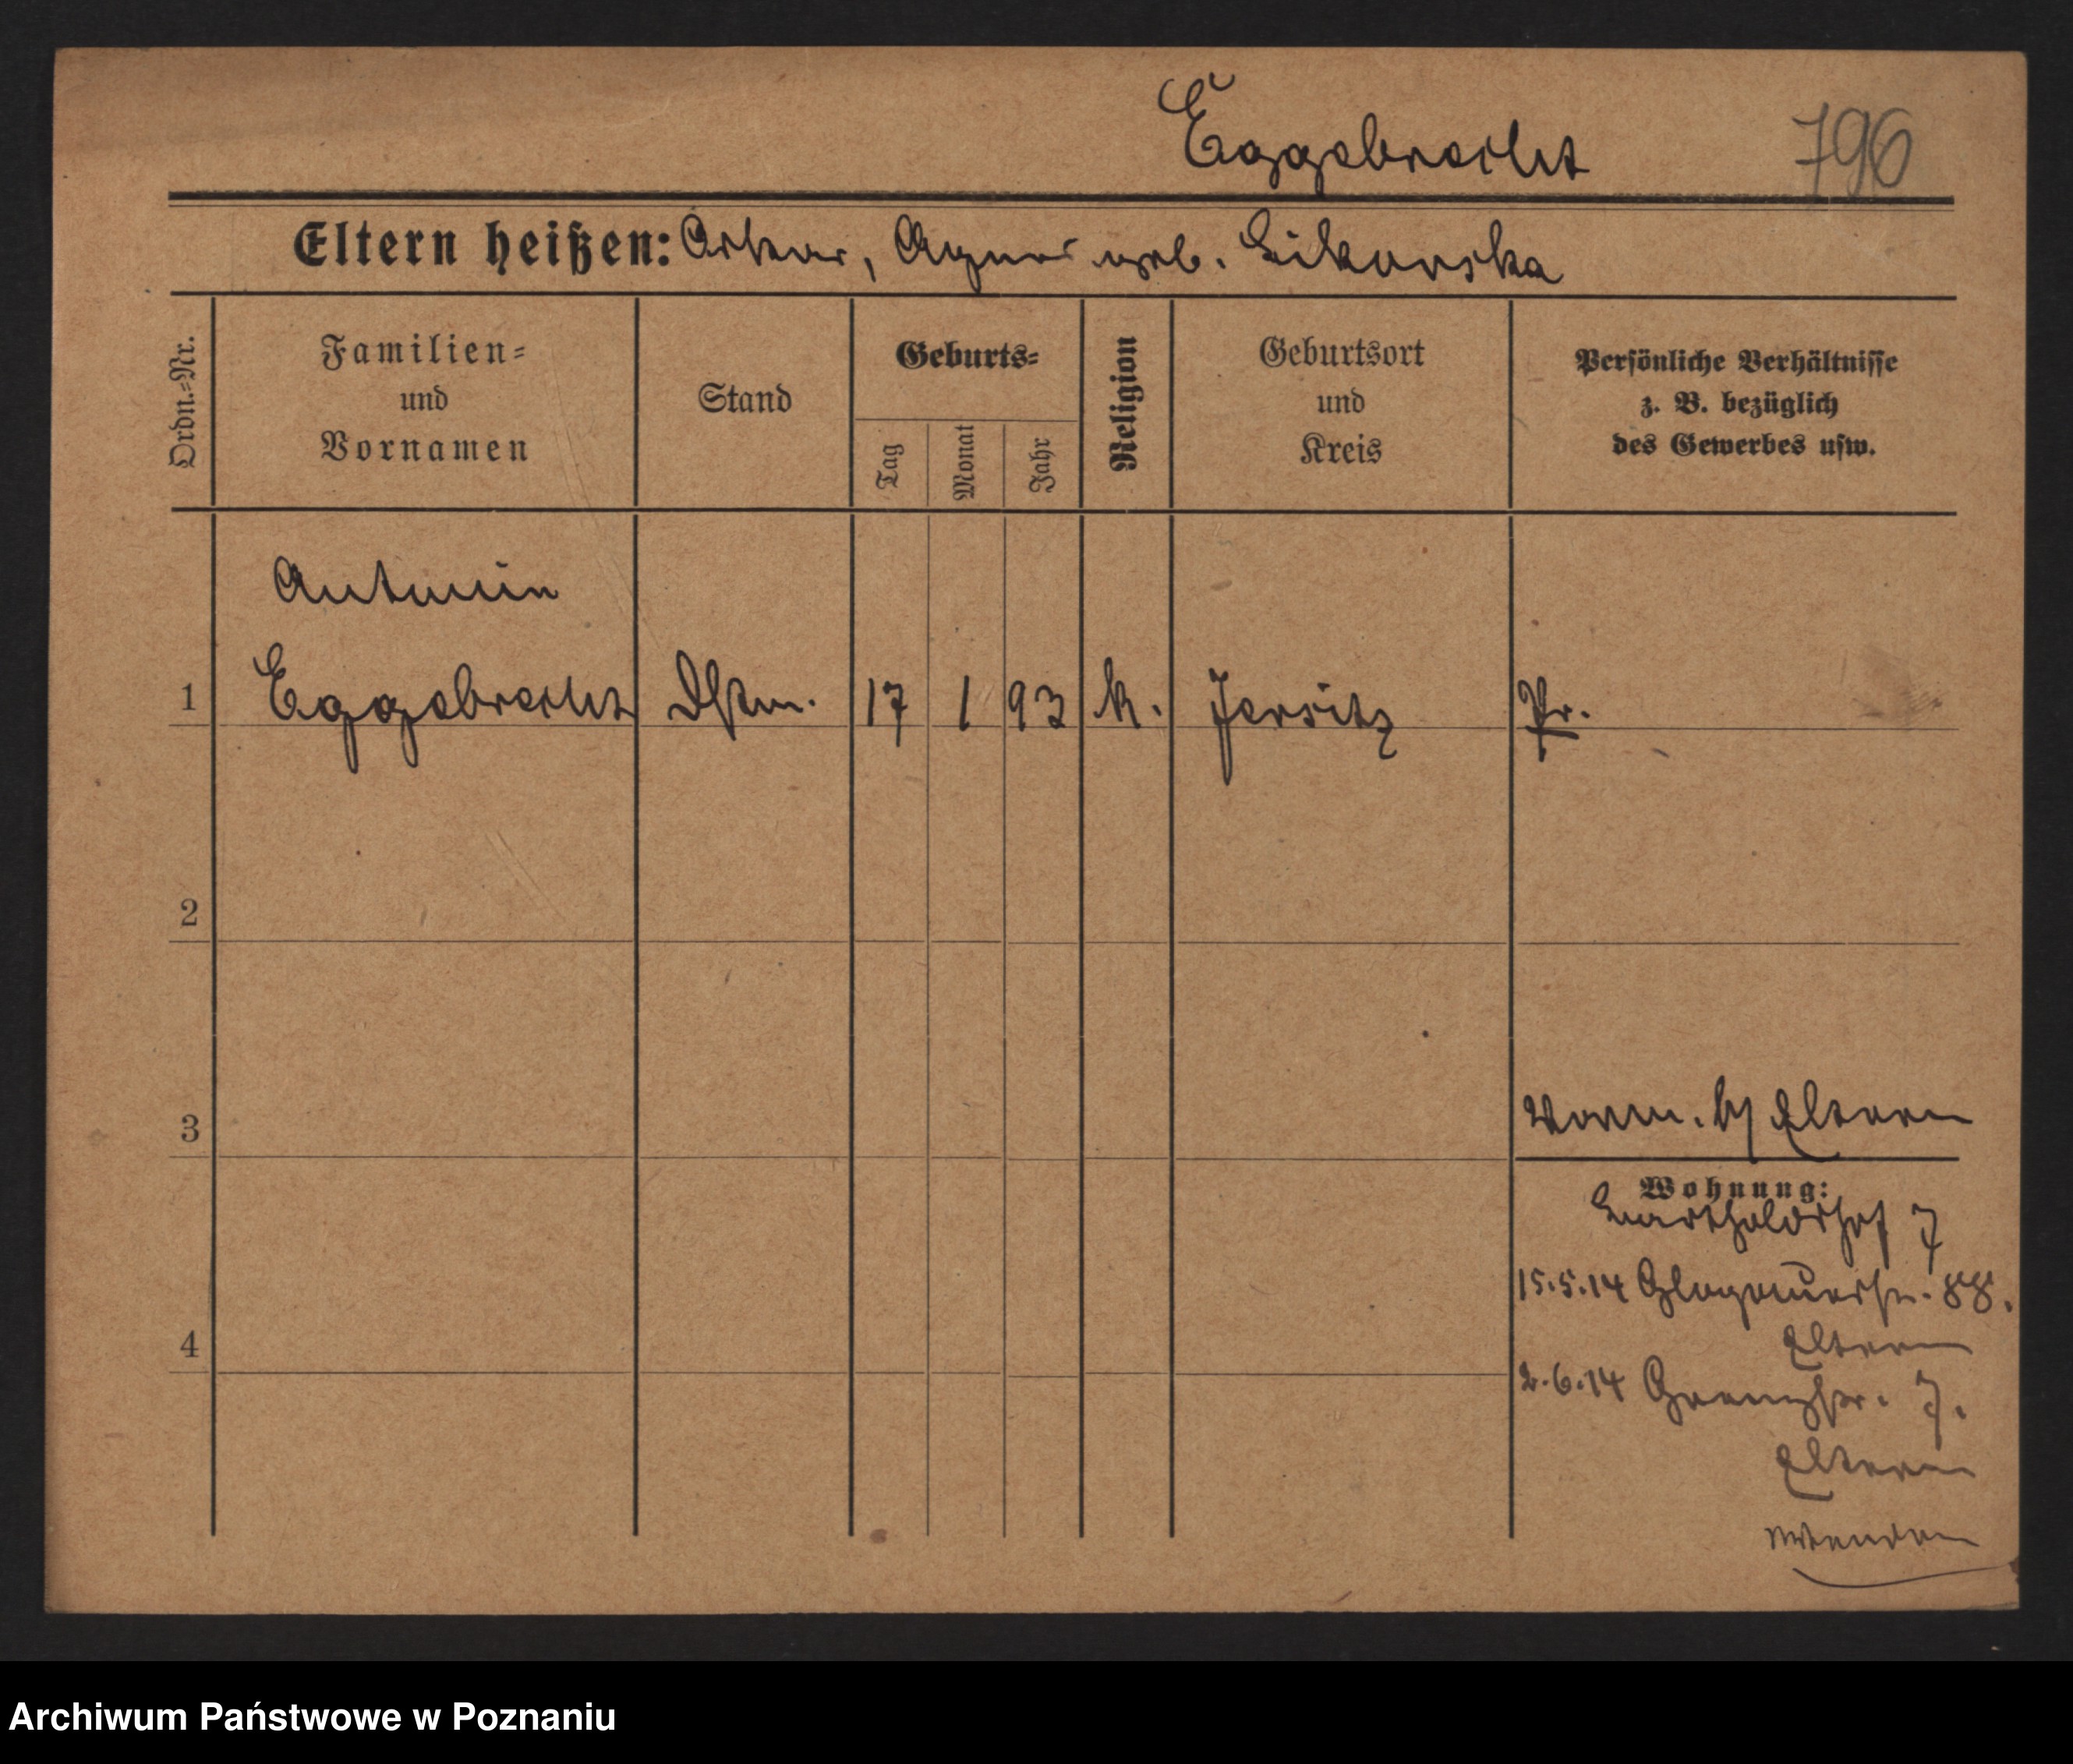 Eggebrecht
796
Eltern heißen: Oskar, Agnes geb. Sikorska
Ordn.=Nr.
Familien=
und
Vornamen
Stand
Geburts=
Tag
Monat
Jahr
Religion
Geburtsort
und
Kreis
Persönliche Verhältnisse
z. B. bezüglich
des Gewerbes usw.
Antonin
1 Eggebrecht 17 1 93 k. Jersitz Pr.
2
3
Eltern
Wohnung:
7
15.5.14 Glogauerstr. 88.
Eltern
4
2.6.14 Grenzstr. 7.
Eltern
wenden
Archiwum Państwowe w Poznaniu